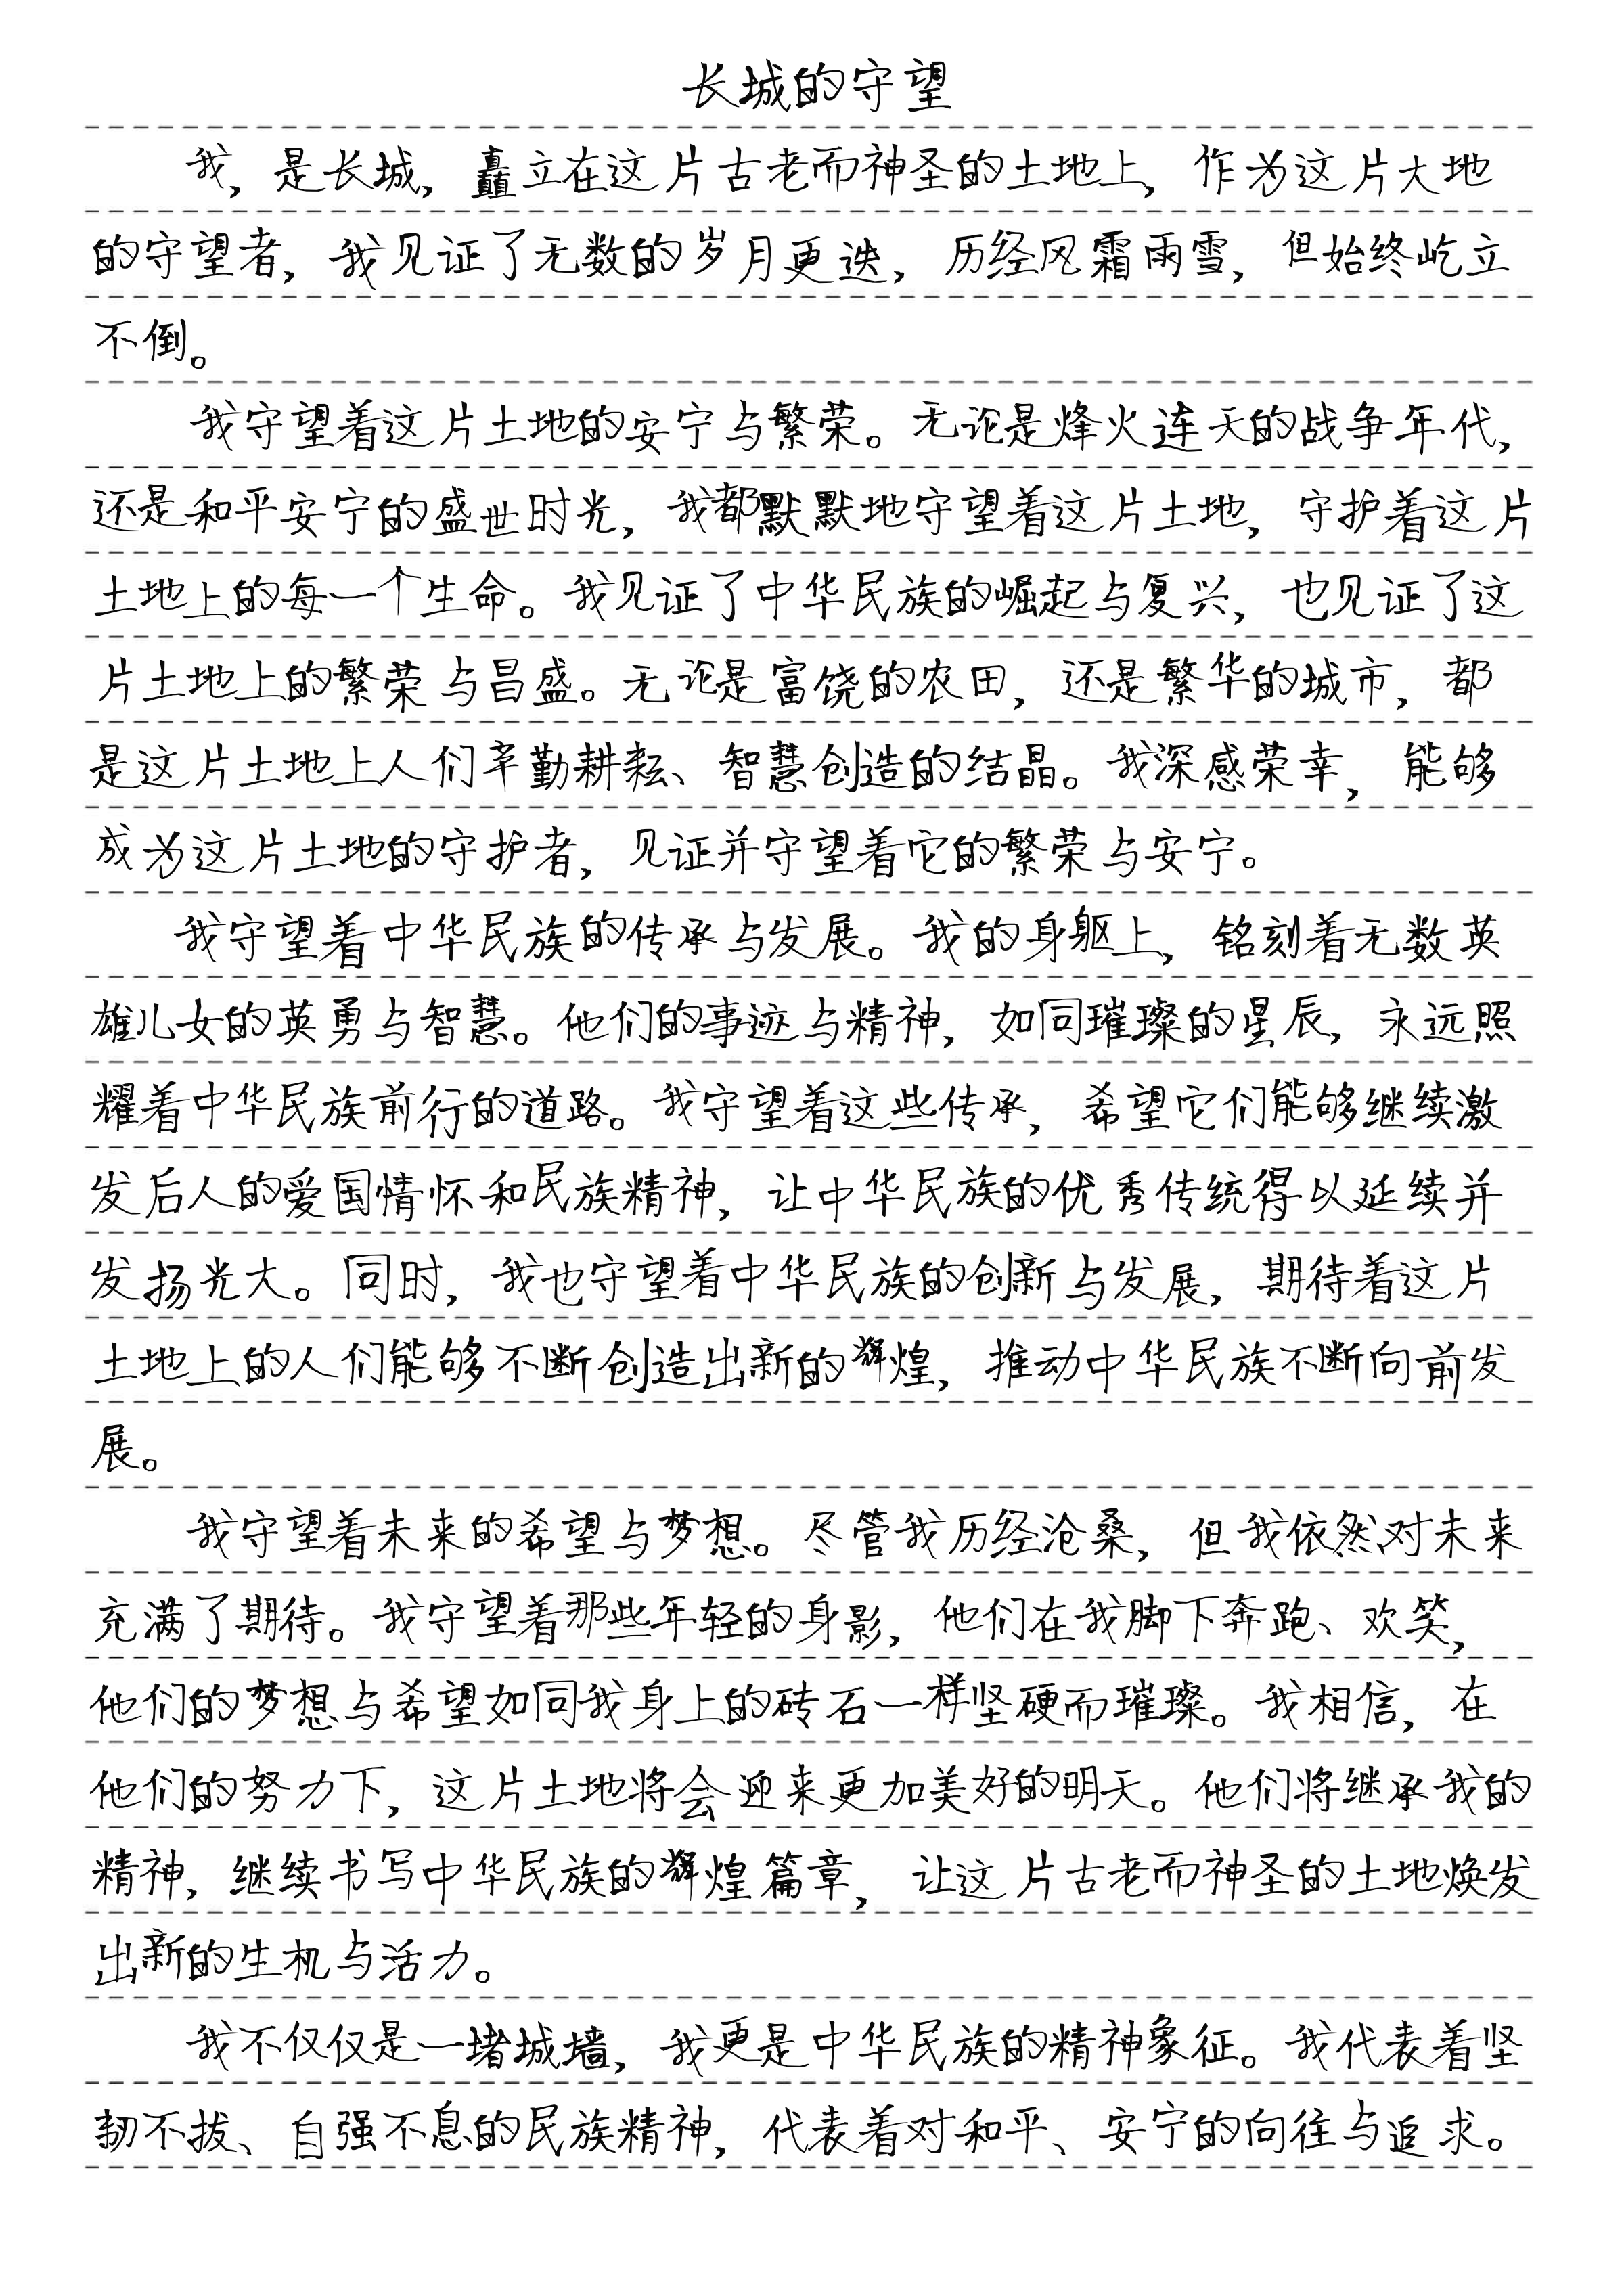 长城的守望
我，是长城，矗立在这片古老而神圣的土地上，作为这片大地
的守望者，我见证了无数的岁月更迭，历经风霜雨雪，但始终屹立
不倒。
我守望着这片土地的安宁与繁荣。无论是烽火连天的战争年代，
还是和平安宁的盛世时光，我都默默地守望着这片土地，守护着这片
土地上的每一个生命。我见证了中华民族的崛起与复兴，也见证了这
片土地上的繁荣与昌盛。无论是富饶的农田，还是繁华的城市，都
是这片土地上人们辛勤耕耘、智慧创造的结晶。我深感荣幸，能够
成为这片土地的守护者，见证并守望着它的繁荣与安宁。
我守望着中华民族的传承与发展。我的身躯上，铭刻着无数英
雄儿女的英勇与智慧。他们的事迹与精神，如同璀璨的星辰，永远照
耀着中华民族前行的道路。我守望着这些传承，希望它们能够继续激
发后人的爱国情怀和民族精神，让中华民族的优秀传统得以延续并
发扬光大。同时，我也守望着中华民族的创新与发展，期待着这片
土地上的人们能够不断创造出新的辉煌，推动中华民族不断向前发
展。
我守望着未来的希望与梦想。尽管我历经沧桑，但我依然对未来
充满了期待。我守望着那些年轻的身影，他们在我脚下奔跑、欢笑，
他们的梦想与希望如同我身上的砖石一样坚硬而璀璨。我相信，在
他们的努力下，这片土地将会迎来更加美好的明天。他们将继承我的
精神，继续书写中华民族的辉煌篇章，让这片古老而神圣的土地焕发
出新的生机与活力。
我不仅仅是一堵城墙，我更是中华民族的精神象征。我代表着坚
韧不拔、自强不息的民族精神，代表着对和平、安宁的向往与追求。